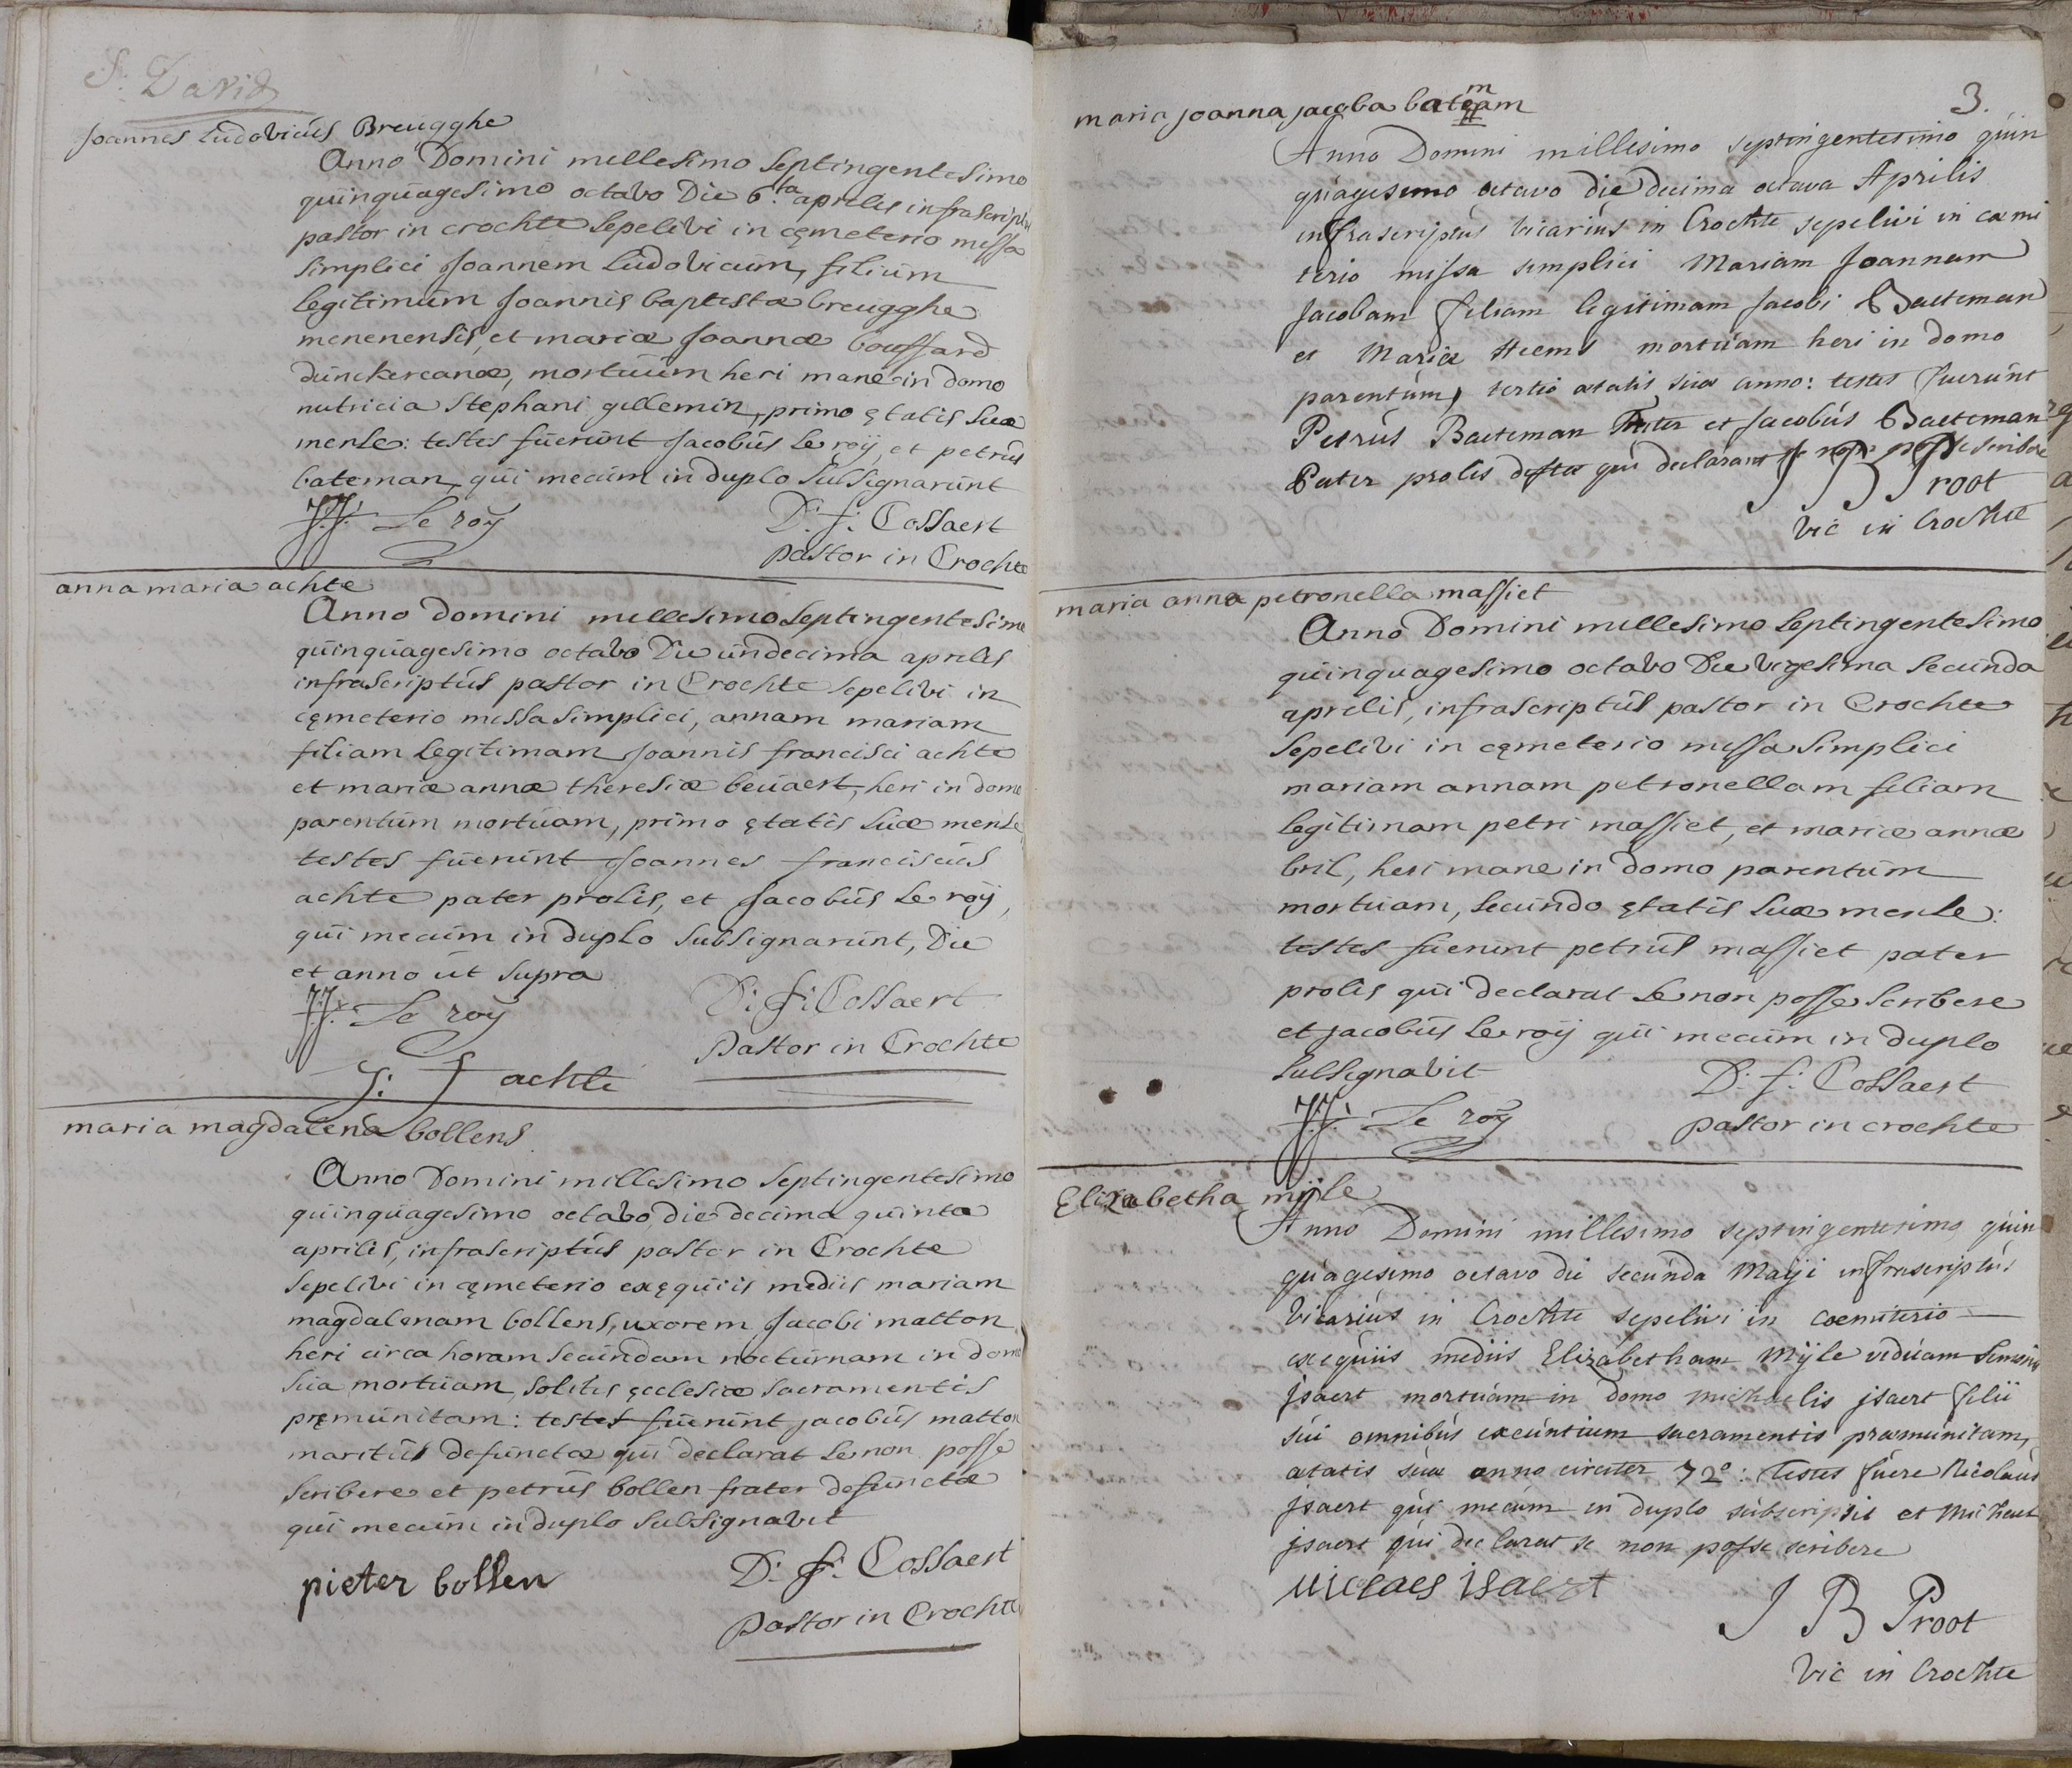 S. David
Joannes Ludovicus Breugghe
Anno Domini millesimo Septingentesimo
quinquagesimo octavo Die 6.ta aprilis infrascriptus
pastor in crochte Sepelivi in cęmeterio missa
Simplici Joannem Ludovicum, filium
legitimum Joannis baptistæ breugghe
menenensis, et mariæ Joannæ bouffard
dunckercanæ, mortuum heri mane in domo
nutricia Stephani gillemin, primo ętatis suæ
mense: testes fuerunt Jacobus le roÿ, et petrus
bateman, qui mecum in duplo Subsignarunt
J.J. Le roÿ D: f: Cossaert
pastor in Crochte
anna maria achte
Anno Domini millesimo Septingentesimo
quinquagesimo octavo Die undecima aprilis
infrascriptus pastor in Crochte sepelivi in
cęmeterio missa Simplici, annam mariam
filiam legitimam Joannis francisci achte
et mariæ annæ theresiæ bevaert, heri in domo
parentum mortuam, primo ętatis suæ mense,
testes fuerunt Joannes franciscus
achte pater prolis, et Jacobus le roÿ,
qui mecum in duplo Subsignarunt, Die
et anno ut supra
J.J. Le roÿ D: f: Cossaert
pastor in Crochte
J: f achte
maria magdalena bollens
Anno Domini millesimo Septingentesimo
quinquagesimo octavo, die decima quinta
aprilis, infrascriptus pastor in Crochte
sepelivi in cęmeterio exęquiis mediis mariam
magdalenam bollens, uxorem Jacobi matton
heri circa horam Secundam nocturnam in domo
sua mortuam, solitis ęcclesiæ sacramentis
pręmunitam: testes fuerunt jacobus matton
maritus defunctæ qui declarat se non posse
scribere et petrus bollen frater defunctæ
qui mecum in duplo subsignavit
pieter bollen D: f: Cossaert
pastor in Crochte
3.
maria joanna jacoba batemam
Anno Domini millesimo septingentesimo quin
quagesimo octavo die decima octava Aprilis
infrascriptus vicarius in Crochte sepelivi in cæmi
terio missa simplici Mariam Joannam
Jacobam filiam legitimam Jacobi Baeteman
et Mariæ Heems mortuam heri in domo
parentum, tertio ætatis suæ anno: testes fuerunt
Petrus Baeteman et Jacobus Baeteman
Pater prolis qui declarant se non posse scribere
J B Proot
vic in Crochte
maria anna petronella massiet
Anno Domini millesimo Septingentesimo
quinquagesimo octavo Die vigesima secunda
aprilis, infrascriptus pastor in Crochte
Sepelivi in cęmeterio missa Simplici
mariam annam petronellam filiam
legitimam petri massiet, et mariæ annæ
bril, heri mane in domo parentum
mortuam, secundo ętatis suæ mense:
testes fuerunt petrus massiet pater
prolis qui declarat se non posse scribere
et jacobus le roÿ qui mecum in duplo
subsignavit D: f: Cossaert
J.J. Le roÿ pastor in crochte
Elizabetha mÿle
Anno Domini millesimo septingentesimo quin
quagesimo octavo die secunda Maÿi infrascriptus
vicarius in Crochte sepelivi in coemiterio
exequiis mediis Elizabetham Mÿle viduam Simonis
jsaert mortuam in domo michaelis jsaert filii
sui omnibus exeuntium sacramentis præmunitam,
ætatis suæ anno circiter 72°: testes fuere Nicolaus
jsaert qui mecum in duplo subscripsit et Michael
jsaert qui declarat se non posse scribere
niclaes isaert
J B Proot
vic in Crochte